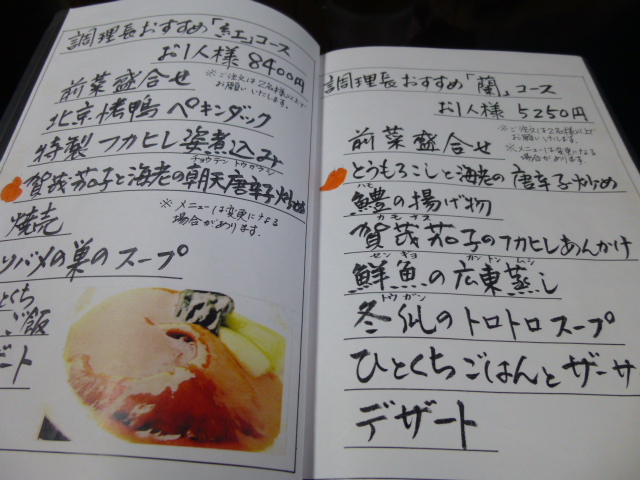 調理長おすすめ「紅」コース
お1人様 8400円
※ご注文は2名様以上で
お願いいたします。
前菜盛合せ
北京烤鴨 ペキンダック
特製 フカヒレ姿煮込み
チョウテン トウガラシ
賀茂茄子と海老の朝天唐辛子炒め
※メニューは変更になる
場合があります。
焼売
ツバメの巣のスープ
とくち
ご飯
ート
調理長おすすめ「蘭」コース
お1人様 5250円
※ご注文は2名様以上で
お願いいたします。
※メニューは変更になる
場合があります。
前菜盛合せ
とうもろこしと海老の唐辛子炒め
ハモ
鱧の揚げ物
カモナス
賀茂茄子のフカヒレあんかけ
センギョ カントン ムシ
鮮魚の広東蒸し
トウガン
冬仙のトロトロスープ
ひとくちごはんとザーサ
デザート